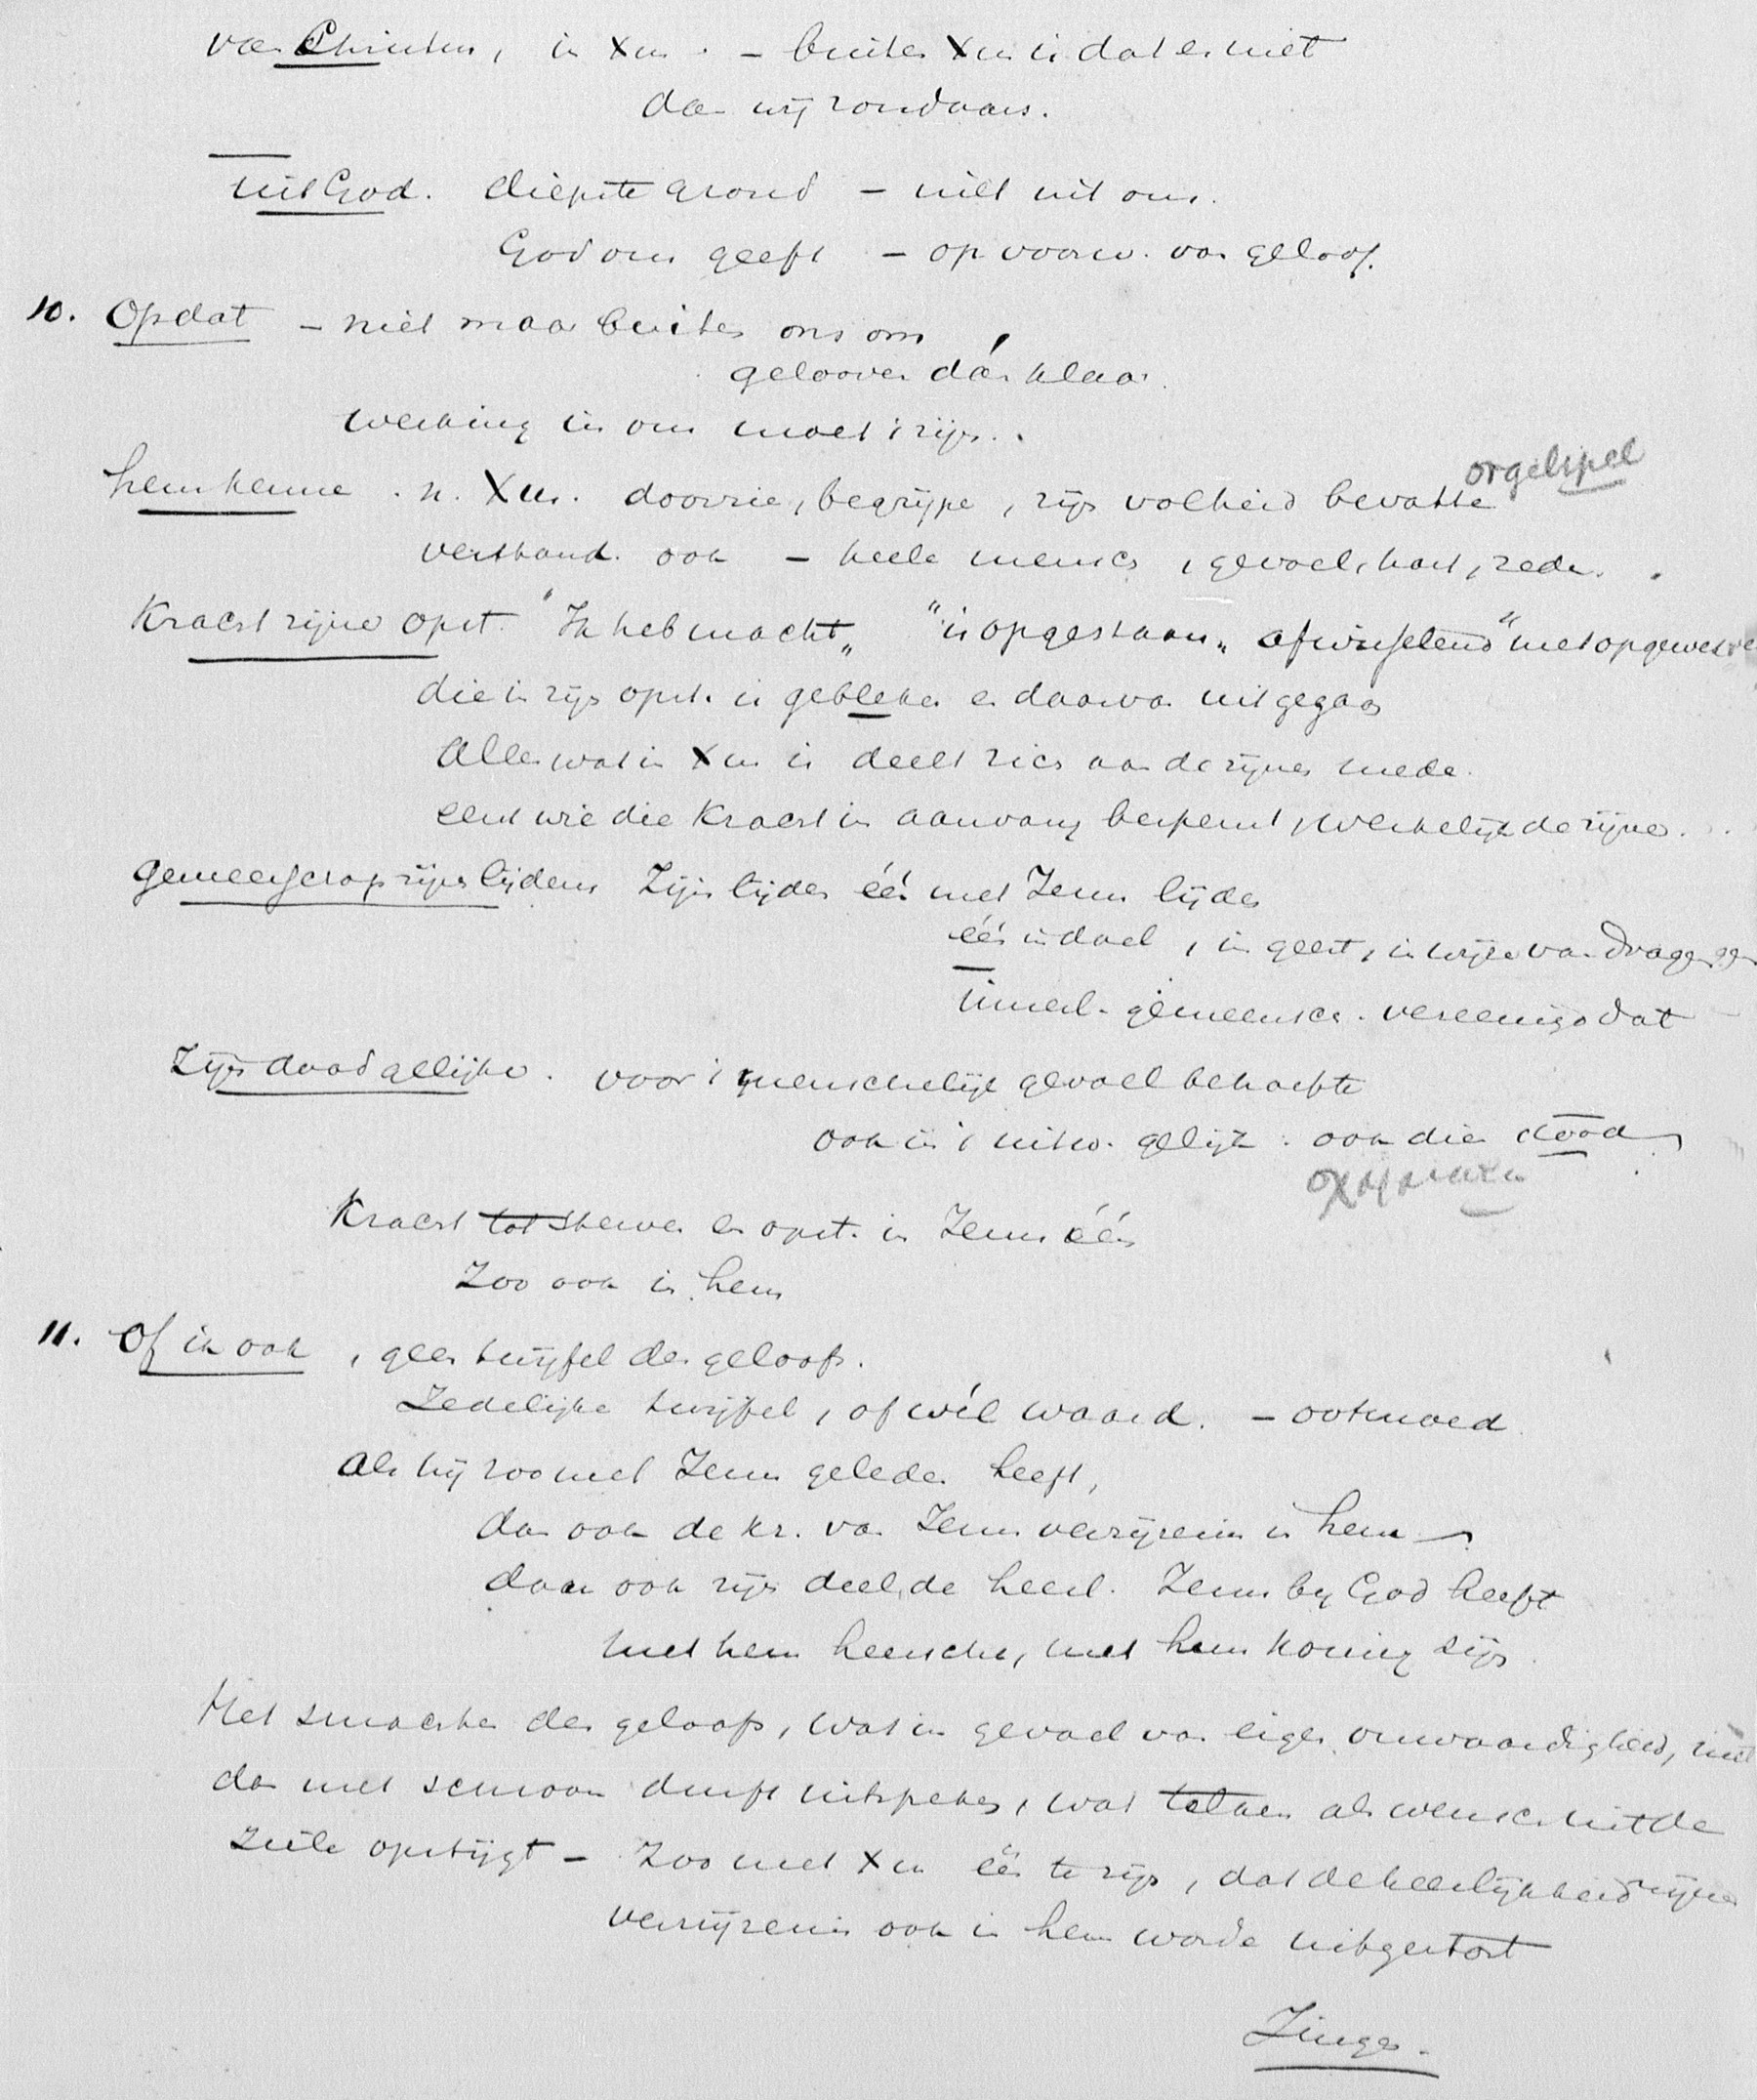 van Christus, in Xus. – buiten Xus is dat er niet
dan wij zondaars.
uit God. diepste grond – niet uit ons.
God ons geeft – op voorw. van geloof.
10. Opdat – niet maar buiten ons om
gelooven dán klaar.
werking in ons moet 't zijn.
hem kenne. n. Xus. doorzie, begrijpe, zijn volheid bevatte orgelspel
verstand ook – heele mensch, gevoel, hart, rede.
Kracht zijner opst. "Ik heb macht„ "is opgestaan„ afwisselend met "opgewekt
die in zijn opst. is gebleken en daarvan uitgegaan
Alles wat in Xus is deelt zich aan de zijnen mede.
eerst wie die Kracht in aanvang bespeurt, werkelijk de zijne.
Gemeenschap zijns lijdens Zijn lijden één met Jezus lijden
één in doel, in geest, in wijze van dragen
innerl. gemeensch. vereenigd dat
Zijn dood gelijkv. voor 't menschelijk gevoel behoefte
ook in 't uitw. gelijk. ook die dood
Kracht tot sterven en opst. in Jezus één
Zoo ook in hem
11. Of ik ook, geen twijfel des geloofs.
Zedelijke twijfel, of wèl waard. – ootmoed.
Als hij zoo met Jezus geleden heeft,
dan ook de kr. van Jezus verrijzenis in hem
dan ook zijn deel, de heerl. Jezus by God heeft
met hem heerschen, met hem koning zijn.
Het smachten des geloofs, wat in gevoel van eigen onwaardigheid, niet
dan met schroom durft uitspreken, wat telkens als wensch uit de
ziele opstijgt – Zoo met Xus één te zijn, dat de heerlijkheid zijner
verrijzenis ook in hem worde uitgestort
Zingen.